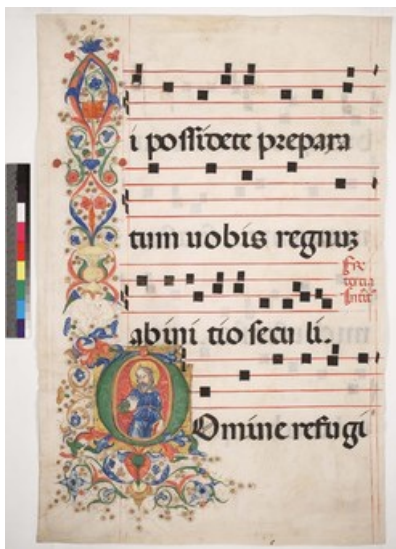 i possidete prepara
tum uobis regnuz
tercia
ab ini tio secu li.
DOmine refugi